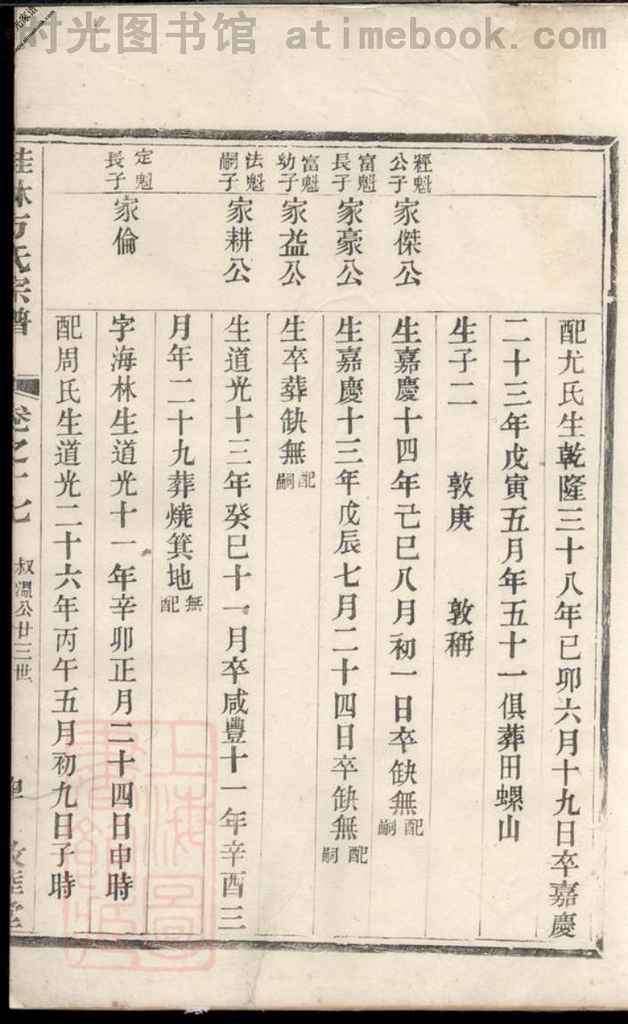 时光图书馆 atimebook.com
配尤氏生乾隆三十八年己卯六月十九日卒嘉慶
二十三年戊寅五月年五十一俱葬田螺山
生子二 敦庚 敦稱
經魁公子 家傑公 生嘉慶十四年己巳八月初一日卒缺無配嗣
富魁長子 家豪公 生嘉慶十三年戊辰七月二十四日卒缺無配嗣
富魁幼子 家益公 生卒葬缺無配嗣
法魁嗣子 家耕公 生道光十三年癸巳十一月卒咸豐十一年辛酉三
月年二十九葬燒箕地無配
定魁長子 家倫 字海林生道光十一年辛卯正月二十四日申時
配周氏生道光二十六年丙午五月初九日子時
桂林方氏宗譜 卷之十七 公廿三世